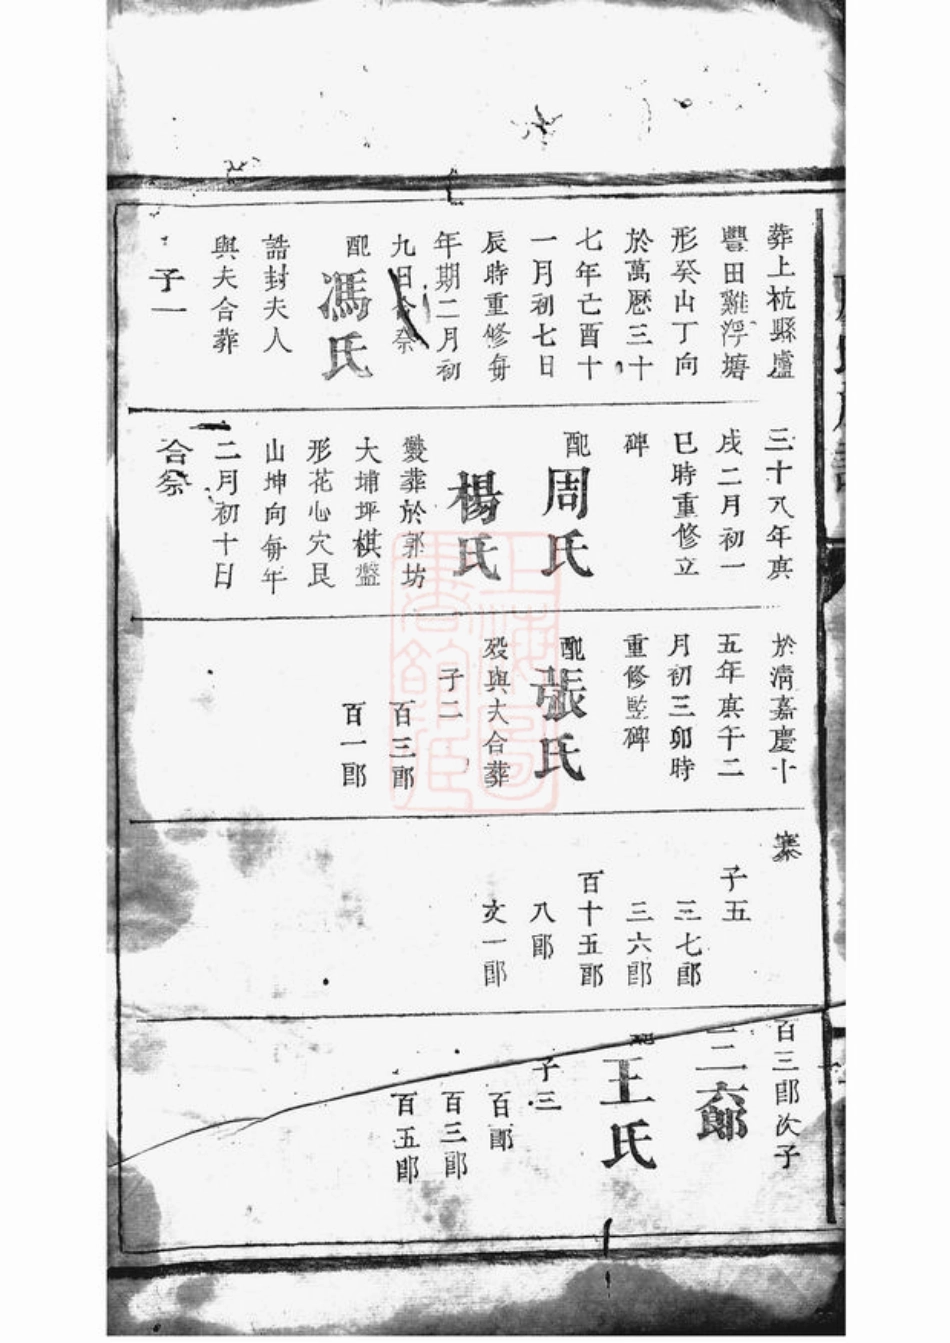 葬上杭縣廬
豐田雞浮塘
形癸山丁向
於萬厯三十
七年亡酉十
一月初七日
辰時重修每
年期二月初
九日合祭
配馮氏
誥封夫人
與夫合葬
子一
三十八年庚
戌二月初一
巳時重修立
碑
配周氏
楊氏
雙葬於郭坊
大埔坪棋盤
形花心穴艮
山坤向每年
二月初十日
合祭
於清嘉慶十
五年庚午二
月初三卯時
重修監碑
配張氏
殁與夫合葬
子二
百三郎
百一郎
寨
子五
三七郎
三六郎
百十五郎
八郎
文一郎
百三郎次子
三六郎
配王氏
子三
百郎
百三郎
百五郎